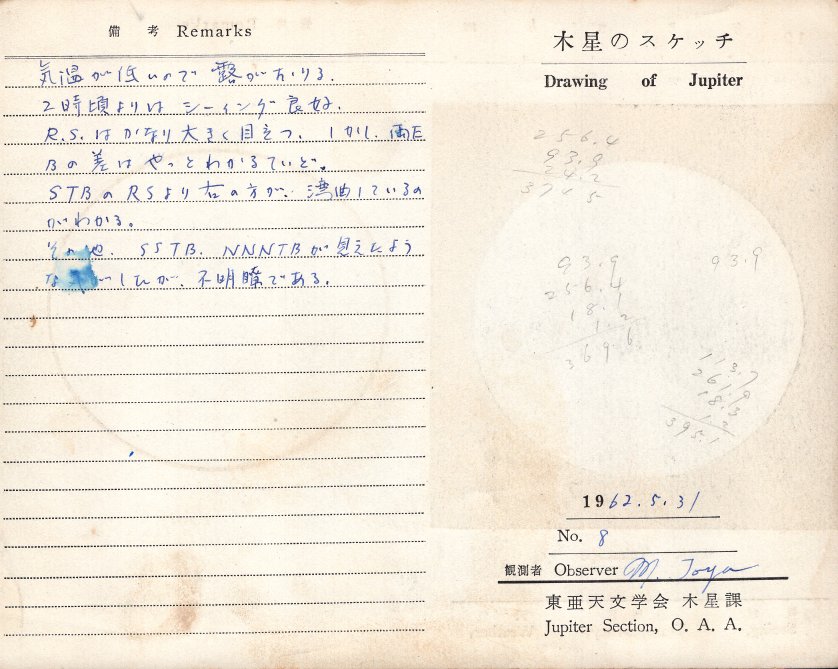 備 考 Remarks
気温が低いので 露がおりる.
2時頃よりは シーイング良好.
R.S.はかなり大きく目立つ. しかし, 両E
Bの差はやっとわかるていど。
STBのRSより右の方が、湾曲しているの
がわかる。
その他. SSTB. NNNTBが見えたよう
な したが、不明瞭である.
木星のスケッチ
Drawing of Jupiter
256.4
93.9
24.2
374 5
93.9
256.4
18.1
1 2
369.6
93.9
113.7
261.9
18.3
1 2
395.1
1962.5.31
No. 8
観測者 Observer M. Toya
東亜天文学会 木星課
Jupiter Section, O. A. A.